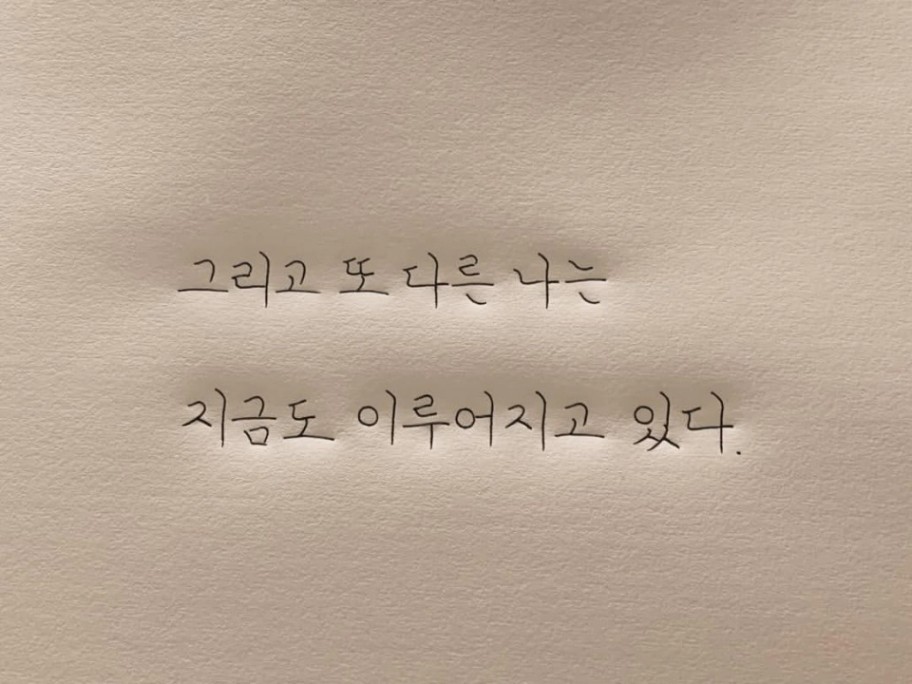 그리고 또 다른 나는
지금도 이루어지고 있다.